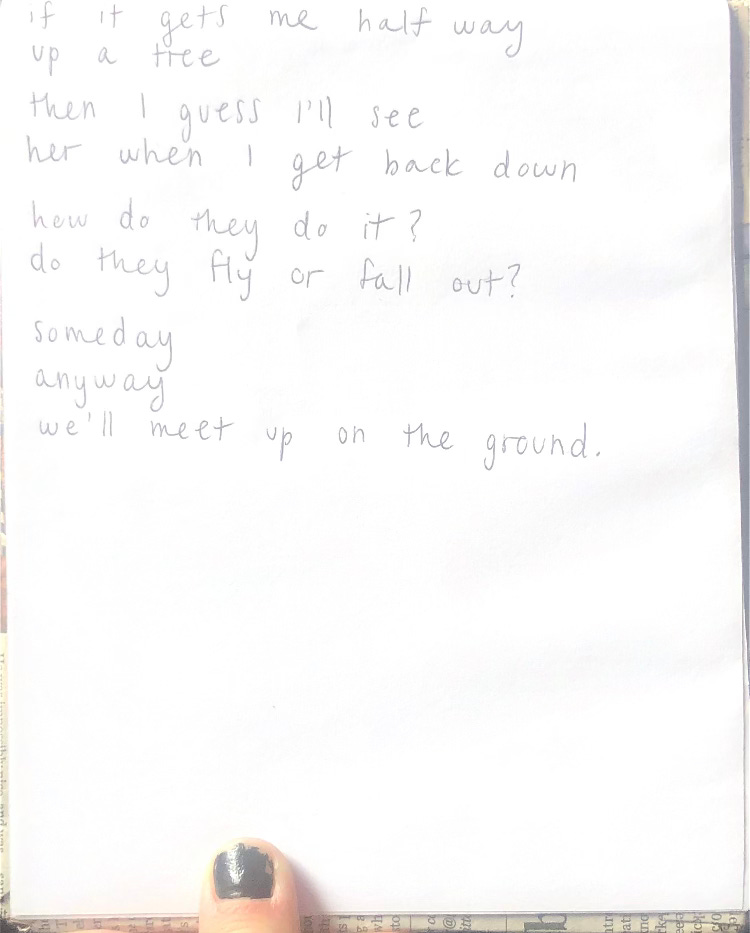 if it gets me half way
up a tree
then I guess I'll see
her when I get back down
how do they do it?
do they fly or fall out?
someday
anyway
we'll meet up on the ground.